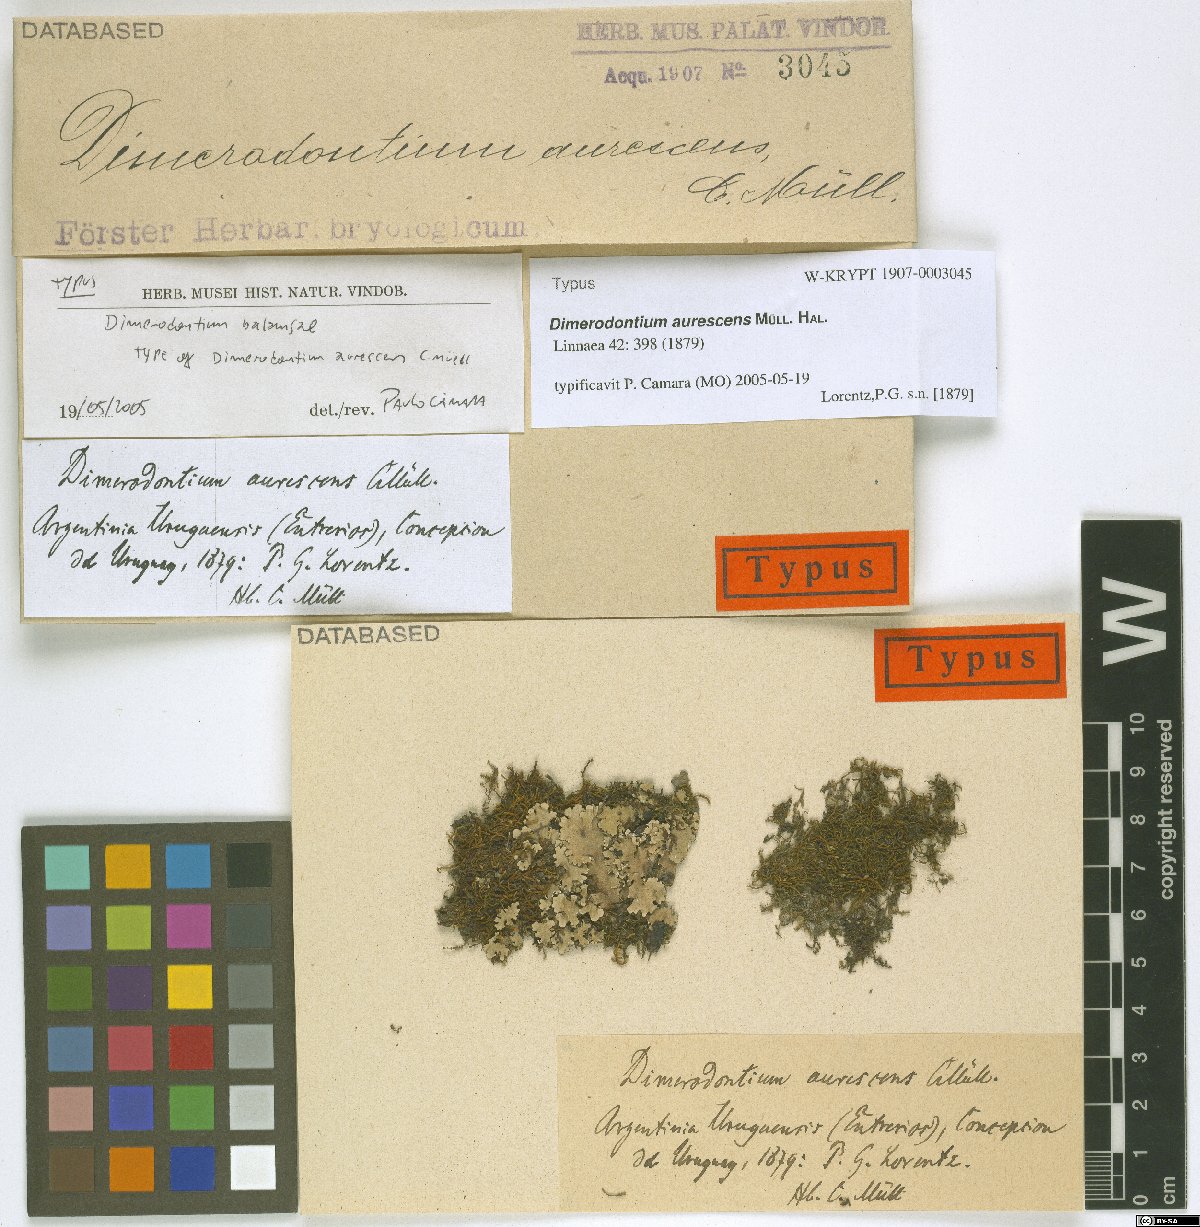 DATABASED
HERB. MUS. PALAT. VINDOB.
Acqu. 1907 No. 3045
Dimerodontium aurescens,
C. Müll.
Förster Herbar. bryologicum.
typus
HERB. MUSEI HIST. NATUR. VINDOB.
Dimerodontium balansae
type of Dimerodontium aurescens C Müell
19/05/2005 det./rev. Paulo Câmara
Typus W-KRYPT 1907-0003045
Dimerodontium aurescens MÜLL. HAL.
Linnaea 42: 398 (1879)
typificavit P. Camara (MO) 2005-05-19
Lorentz,P.G. s.n. [1879]
Dimerodontium aurescens CMüll.
Argentinia Uruguensis (Entrerios), Concepcion
del Uruguay, 1879: P. G. Lorentz.
Hb. C. Müll
Typus
DATABASED
Typus
Dimerodontium aurescens CMüll.
Argentinia Uruguensis (Entrerios), Concepcion
del Uruguay, 1879: P. G. Lorentz.
Hb. C. Müll
W
10
9
8
7
6
5
4
3
2
1
0
cm
copyright reserved
(cc) BY-SA